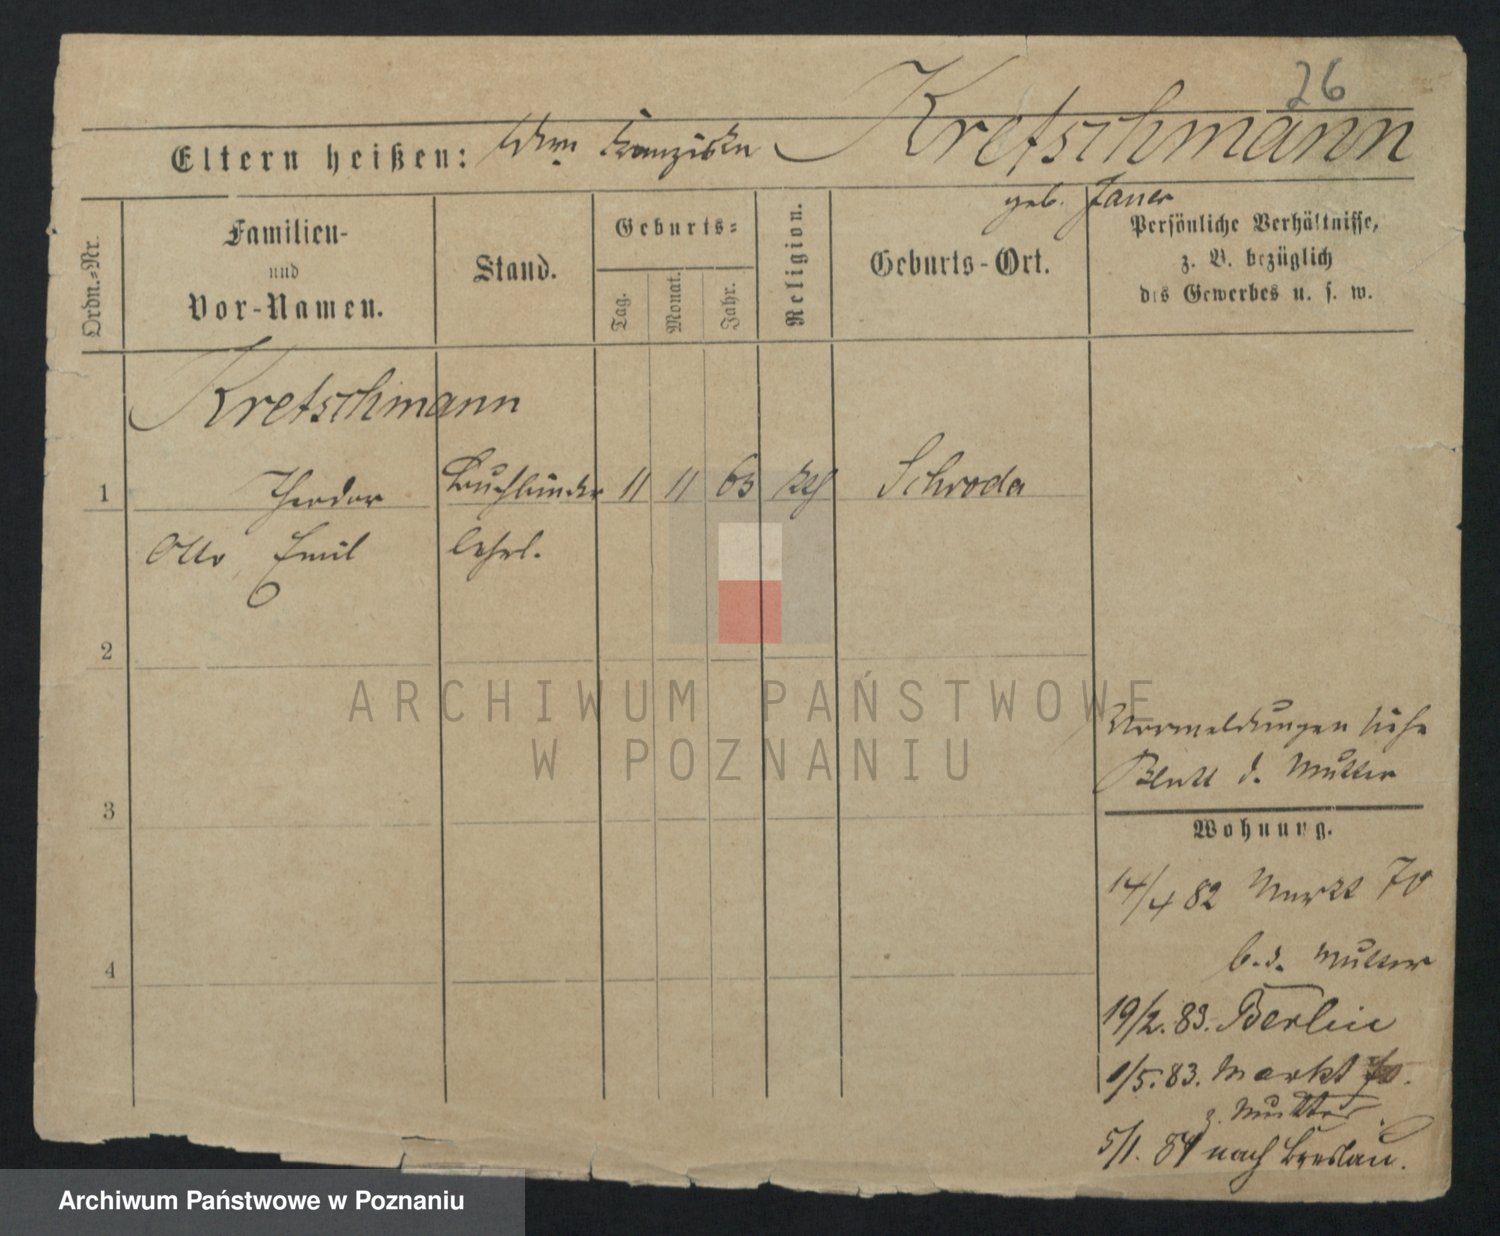 26
Eltern heißen: Wwe Franziska Kretschmann
geb. Jauer
Ordn.-Nr.
Familien-
und
Vor-Namen.
Stand.
Geburts-
Tag.
Monat.
Jahr.
Religion.
Geburts-Ort.
Persönliche Verhältnisse,
z. B. bezüglich
des Gewerbes u. s. w.
Kretschmann
1 Theodor Buchbinder 11 11 63 kth Schroda
Otto Emil Lehrl.
2
ARCHIWUM PAŃSTWOWE
W POZNANIU
Vormeldungen siehe
Blatt d. Mutter
3
Wohnung.
14/4 82 Markt 70
b. d. Mutter
4
19/2. 83. Berlin
1/5. 83. Markt 70.
z. Mutter.
5/1. 84 nach Breslau.
Archiwum Państwowe w Poznaniu